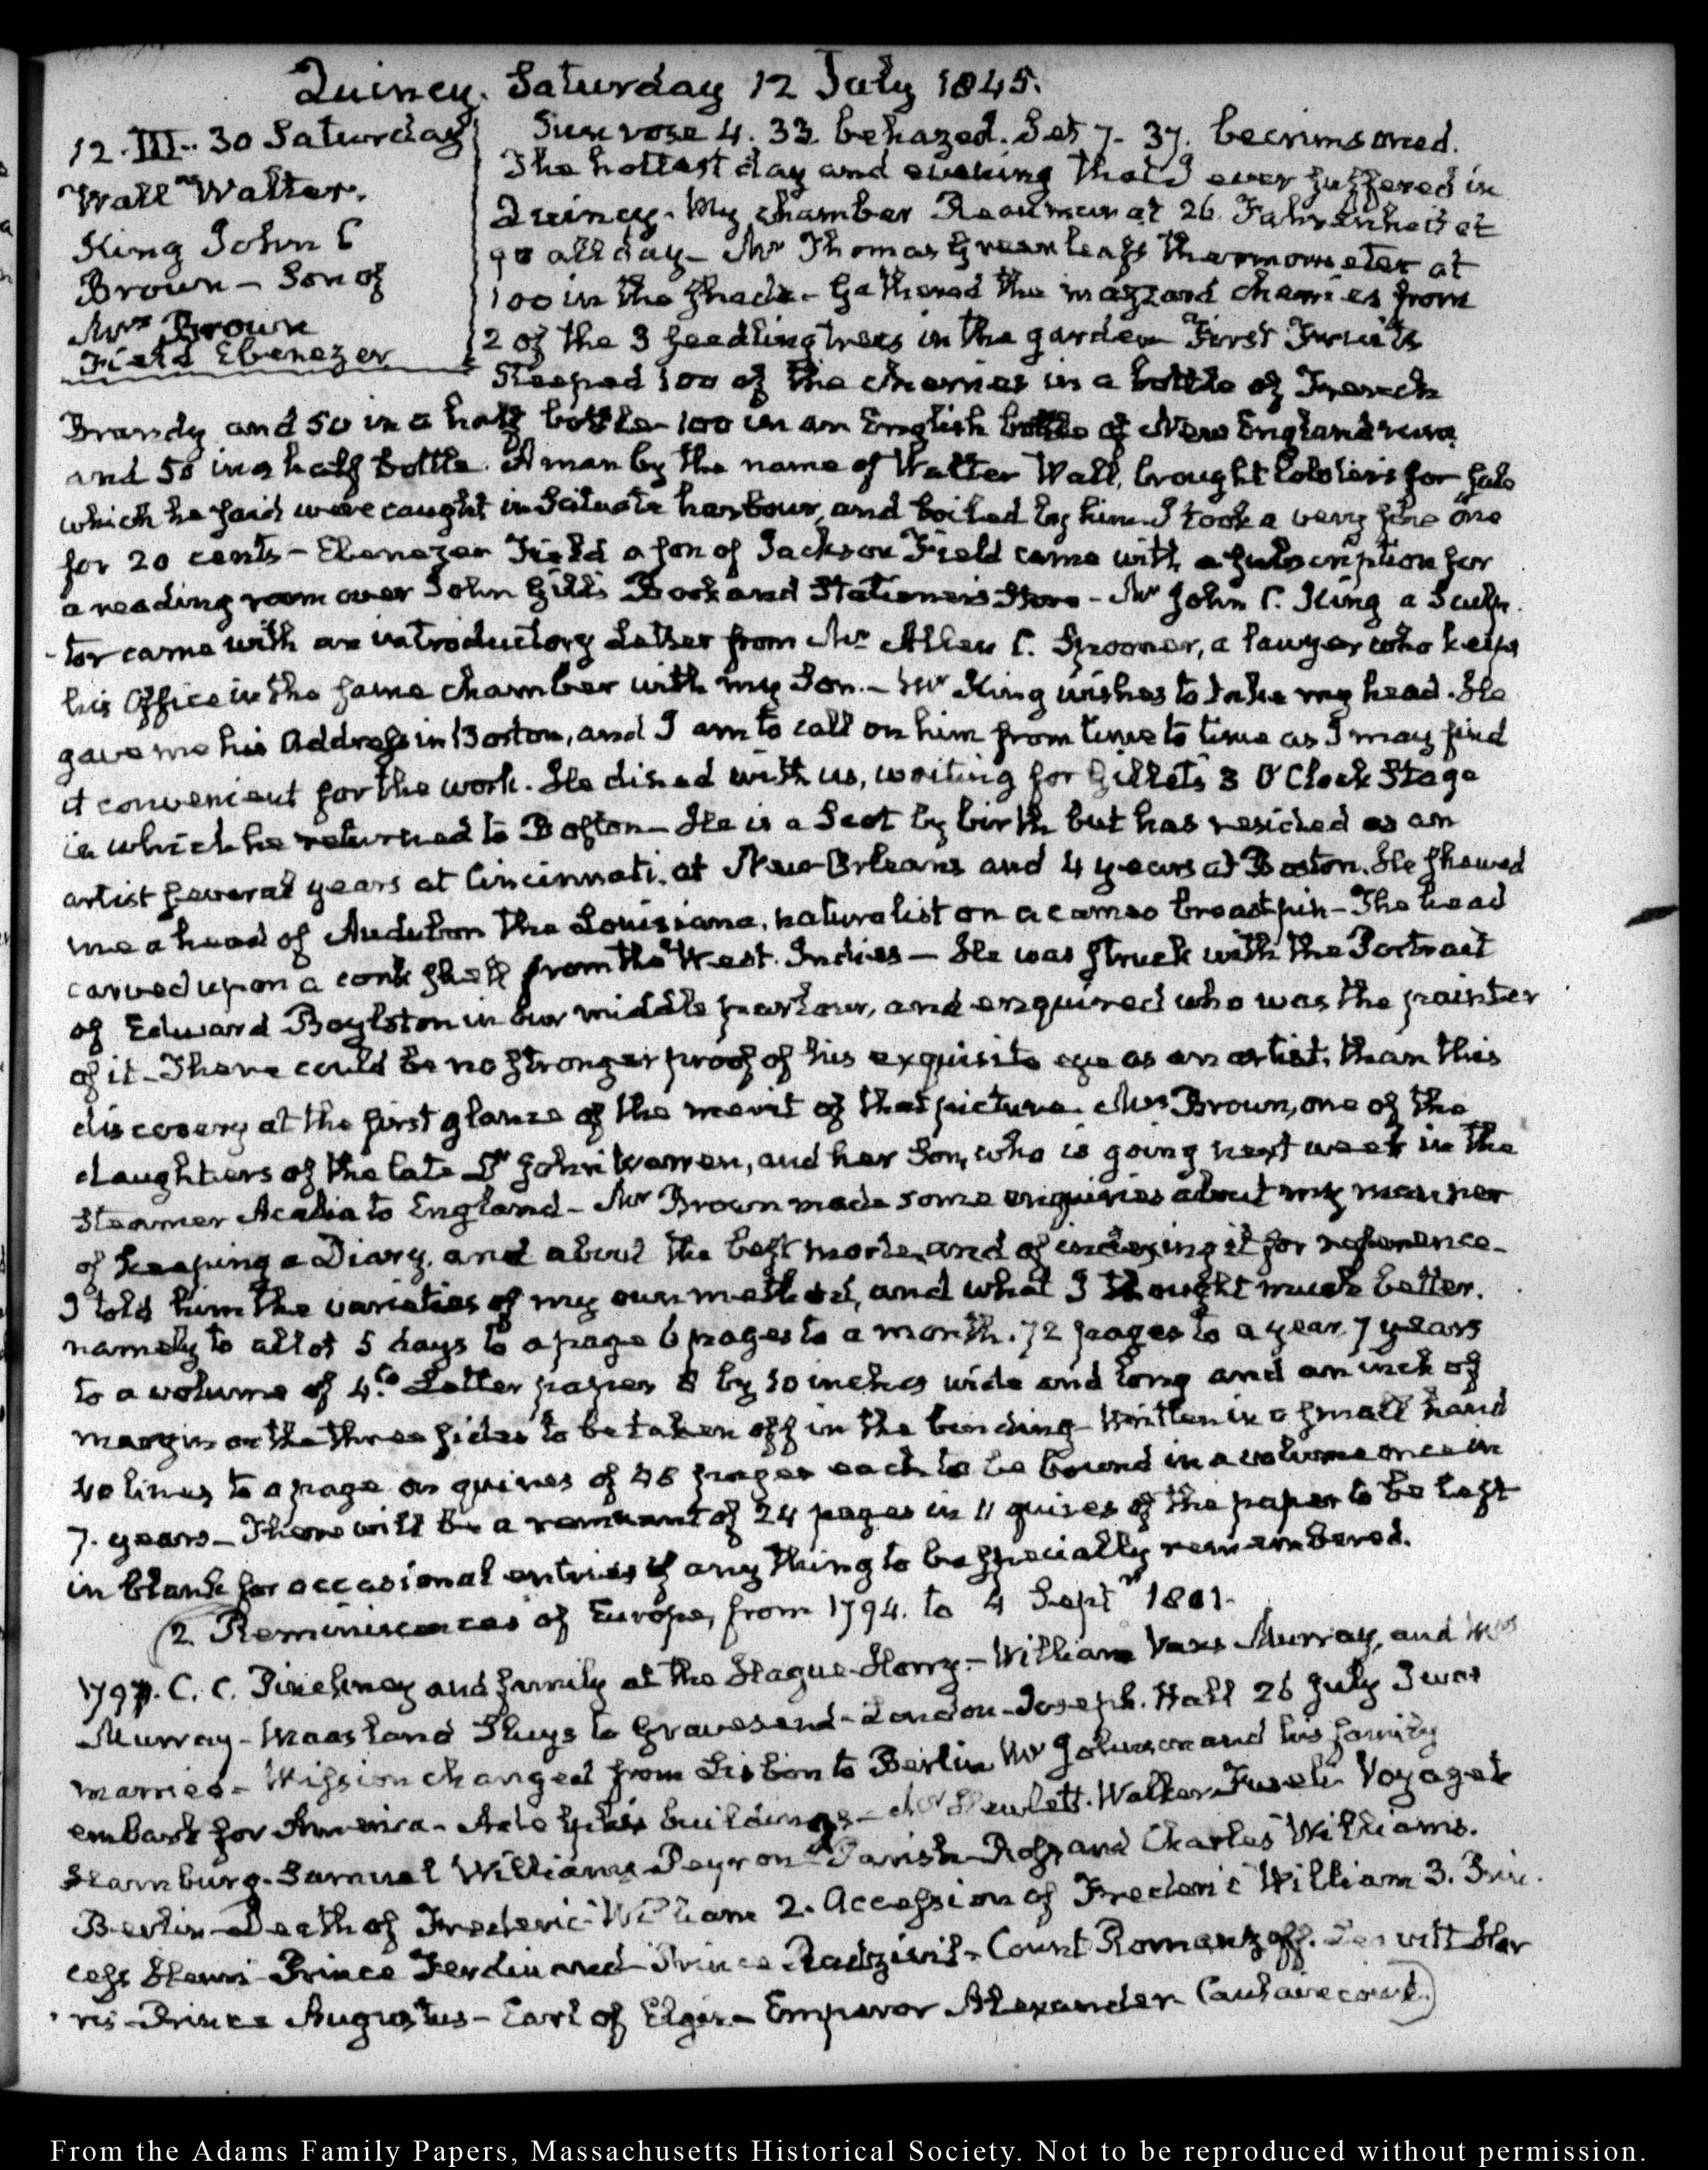 Quincy. Saturday 12 July 1845.
12. III. 30 Saturday
Wall Walter.
King John C
Brown – Son of
Mrs Brown
Field Ebenezer
Sun rose 4. 33. behazed. Set 7. 37. becrimsoned.
The hottest day and evening that I ever suffered in
Quincy. My chamber Reaumur at 26. Fahrenheit at
90 all day – Mr Thomas Greenleaf's thermometer at
100 in the shade – Gathered the mazzard cherries from
2 of the 3 seedling trees in the garden First Fruits
Steeped 100 of the cherries in a bottle of French
Brandy and 50 in a half bottle – 100 in an English bottle of New England rum
and 50 in a half bottle. A man by the name of Walter Wall, brought lobsters for sale
which he said were caught in Scituate harbour, and boiled by him. I took a very fine one
for 20 cents – Ebenezer Field a son of Jackson Field came with a subscription for
a reading room over John Gill's Book and Stationers Store – Mr John C. King a Sculp-
tor came with an introductory Letter from Mr Allen C. Spooner, a lawyer who keeps
his Office in the same chamber with my Son. – Mr King wishes to take my head. He
gave me his Address in Boston, and I am to call on him from time to time as I may find
it convenient for the work. He dined with us, waiting for Gillet's 3 O'Clock Stage
in which he returned to Boston – He is a Scot by birth but has resided as an
artist several years at Cincinnati, at New-Orleans and 4 years at Boston. He shewed
me a head of Audubon the Louisiana, naturalist on a cameo breastpin – The head
carved upon a conk shell from the West. Indies – He was struck with the Portrait
of Edward Boylston in our middle parlour, and enquired who was the painter
of it – There could be no stronger proof of his exquisite eye as an artist, than this
discovery at the first glance of the merit of that picture. Mrs Brown, one of the
daughters of the late Dr John Warren, and her Son, who is going next week in the
Steamer Acadia to England – Mr Brown made some enquiries about my manner
of keeping a Diary, and about the best mode, and of indexing it for reference –
I told him the varieties of my own method, and what I thought much better.
namely to allot 5 days to a page 6 pages to a month. 72 pages to a year 7 years
to a volume of 4.to Letter paper 8 by 10 inches wide and long and an inch of
margin on the three sides to be taken off in the binding – Written in a small hand
40 lines to a page on quires of 48 pages each to be bound in a volume once in
7. years – There will be a remnant of 24 pages in 11 quires of the paper to be left
in blank for occasional entries of any thing to be specially remembered.
(2. Reminiscences of Europe, from 1794. to 4 Septr 1801.
1797. C. C. Pinckney and family at the Hague – Horry – William Vans Murray, and Mrs
Murray – Maasland Sluys to Gravesend – London – Joseph. Hall 26 July I was
married – Mission changed from Lisbon to Berlin Mr Johnson and his family
embark for America – Adelphi buildings – Mr Hewlett. Walker Fuseli. Voyage to
Hamburg. Samuel Williams – Peyron – Parish – Ross, and Charles Williams.
Berlin – Death of Frederic-William 2. Accession of Frederic William 3. Prin-
cess Henri – Prince Ferdinand – Prince Radzivil – Count Romanzoff. Levett Har
ris – Prince Augustus – Earl of Elgin – Emperor Alexander Caulaincourt.)
From the Adams Family Papers, Massachusetts Historical Society. Not to be reproduced without permission.